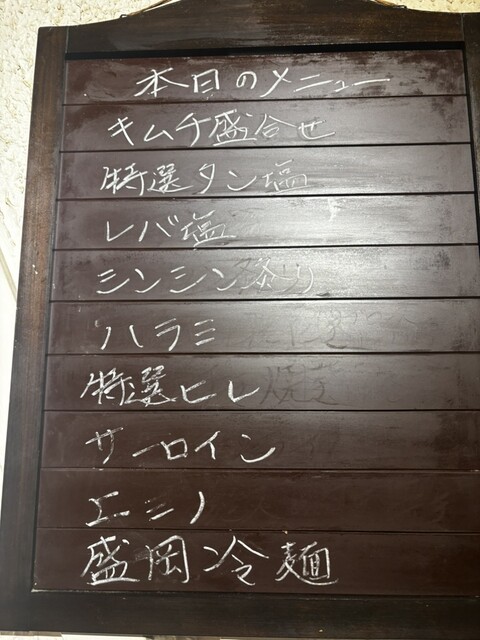 本日のメニュー
キムチ盛合せ
特選タン塩
レバ塩
シンシン炙り
ハラミ
特選ヒレ
サーロイン
盛岡冷麺